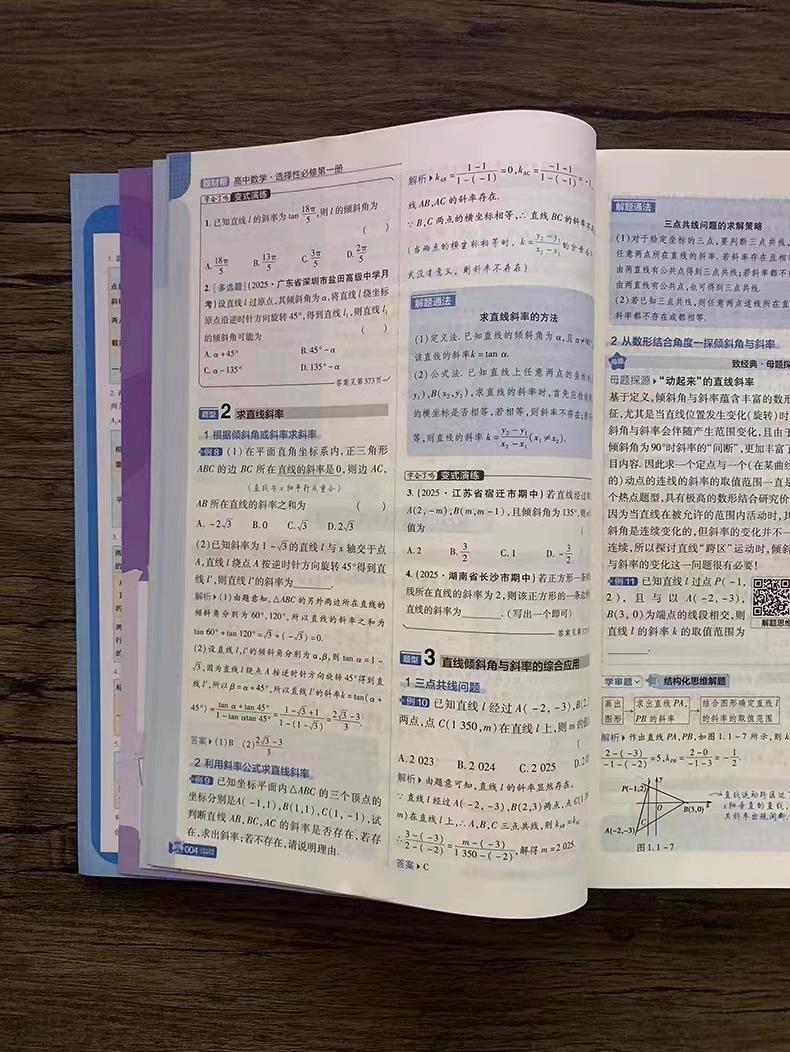 教材帮 高中数学·选择性必修第一册
学会了吗 变式演练
1. 已知直线 l 的斜率为 tan 18π/5，则 l 的倾斜角为
( )
A. 18π/5 B. 13π/5 C. 3π/5 D. 2π/5
2. [多选题](2025·广东省深圳市盐田高级中学月
考)设直线 l 过原点，其倾斜角为 α，将直线 l 绕坐标
原点沿逆时针方向旋转 45°，得到直线 l₁，则直线 l₁
的倾斜角可能为 ( )
A. α+45° B. 45°-α
C. α-135° D. 135°-α
答案见第373页
题型 2 求直线斜率
1 根据倾斜角或斜率求斜率
例8 (1)在平面直角坐标系内，正三角形
ABC 的边 BC 所在直线的斜率是0，则边 AC，
(直线与x轴平行或重合)
AB 所在直线的斜率之和为 ( )
A. -2√3 B. 0 C. √3 D. 2√3
(2)已知斜率为 1-√3的直线 l 与 x 轴交于点
A，直线 l 绕点 A 按逆时针方向旋转 45°得到直
线 l′，则直线 l′的斜率为______.
解析 (1)由题意知，△ABC的另外两边所在直线的
倾斜角分别为 60°，120°，所以直线的斜率之和为
tan 60°+tan 120°=√3+(-√3)=0.
(2)设直线 l，l′的倾斜角分别为 α，β，则 tan α=1-
√3，因为直线 l 绕点 A 按逆时针方向旋转 45°得到直
线 l′，所以 β=α+45°，所以直线 l′的斜率k=tan(α+
45°)=(tan α+tan 45°)/(1-tan αtan 45°)=(1-√3+1)/(1-(1-√3))=(2√3-3)/3.
答案 (1)B (2)(2√3-3)/3
2 利用斜率公式求直线斜率
例9 已知坐标平面内△ABC 的三个顶点的
坐标分别是A(-1,1)，B(1,1)，C(1,-1)，试
判断直线 AB，BC，AC 的斜率是否存在，若存
在，求出斜率；若不存在，请说明理由.
004
解析 k_AB=(1-1)/(1-(-1))=0，k_AC=(-1-1)/(1-(-1))=-1
线 AB，AC 的斜率存在.
∵B，C 两点的横坐标相等，∴直线 BC 的斜率不
(当两点的横坐标相等时，k=(y₂-y₁)/(x₂-x₁)的分
式没有意义，则斜率不存在)
解题通法
求直线斜率的方法
(1)定义法. 已知直线的倾斜角为 α，且 α≠
该直线的斜率k=tan α.
(2)公式法. 已知直线上任意两点的坐标
y₁)，B(x₂,y₂)，求直线的斜率时，首先应检
的横坐标是否相等，若相等，则斜率不存在；
等，则直线的斜率 k=(y₂-y₁)/(x₂-x₁)(x₁≠x₂).
学会了吗 变式演练
3. (2025·江苏省宿迁市期中)若直线经过
A(2,-m)，B(m,m-1)，且倾斜角为 135°，则
值为
A. 2 B. 3/2 C. 1 D. -3/2
4. (2025·湖南省长沙市期中)若正方形一条
线所在直线的斜率为 2，则该正方形的一条边
直线的斜率为______.(写出一个即可)
答案见第373
题型 3 直线倾斜角与斜率的综合应用
1 三点共线问题
例10 已知直线 l 经过 A(-2,-3)，B(2,
两点，点 C(1 350,m)在直线 l 上，则 m 的
A. 2 023 B. 2 024 C. 2 025 D.
解析 由题意可知，直线 l 的斜率显然存在.
∵直线 l 经过 A(-2,-3)，B(2,3)两点，点
m)在直线 l 上，∴A，B，C 三点共线，则 k_AB=
∴(3-(-3))/(2-(-2))=(m-(-3))/(1 350-(-2))，解得 m=2 025.
答案 C
解题通法
三点共线问题的求解策略
(1)对于给定坐标的三点，要判断三点共线，
任意两点所在直线的斜率，若斜率存在且相
由两直线有公共点得到三点共线；若斜率都不
由两直线有公共点，也可得到三点共线.
(2)若已知三点共线，则任意两点连线所在直
斜率都不存在或都相等.
2 从数形结合角度一探倾斜角与斜率
致经典·母题探
母题探源 “动起来”的直线斜率
基于定义，倾斜角与斜率蕴含丰富的数形
征，尤其是当直线位置发生变化(旋转)时
斜角与斜率会伴随产生范围变化，且由于
倾斜角为90°时斜率的“间断”，更加丰富了
目内容. 因此求一个定点与一个(在某曲线
的)动点的连线的斜率的取值范围一直是
个热点题型，具有极高的数形结合研究价
因为当直线在被允许的范围内活动时，其
斜角是连续变化的，但斜率的变化并不一
连续，所以探讨直线“跨区”运动时，倾斜
与斜率的变化这一问题很有必要！
例11 已知直线 l 过点 P(-1,
2)，且与以 A(-2,-3)，
B(3,0)为端点的线段相交，则
直线 l 的斜率 k 的取值范围为
______.
解题思
学审题 结构化思维解题
画出图形 求出直线 PA，PB 的斜率 结合图形确定直线 l 的斜率的取值范围
解析 作出直线 PA，PB，如图 1.1-7 所示，则
(2-(-3))/(-1-(-2))=5，k_PB=(2-0)/(-1-3)=-1/2.
P(-1,2)
O
B(3,0)
x
A(-2,-3)
C
直线运动跨区过了
x轴垂直的直线，
其斜率出现间断.
图1.1-7